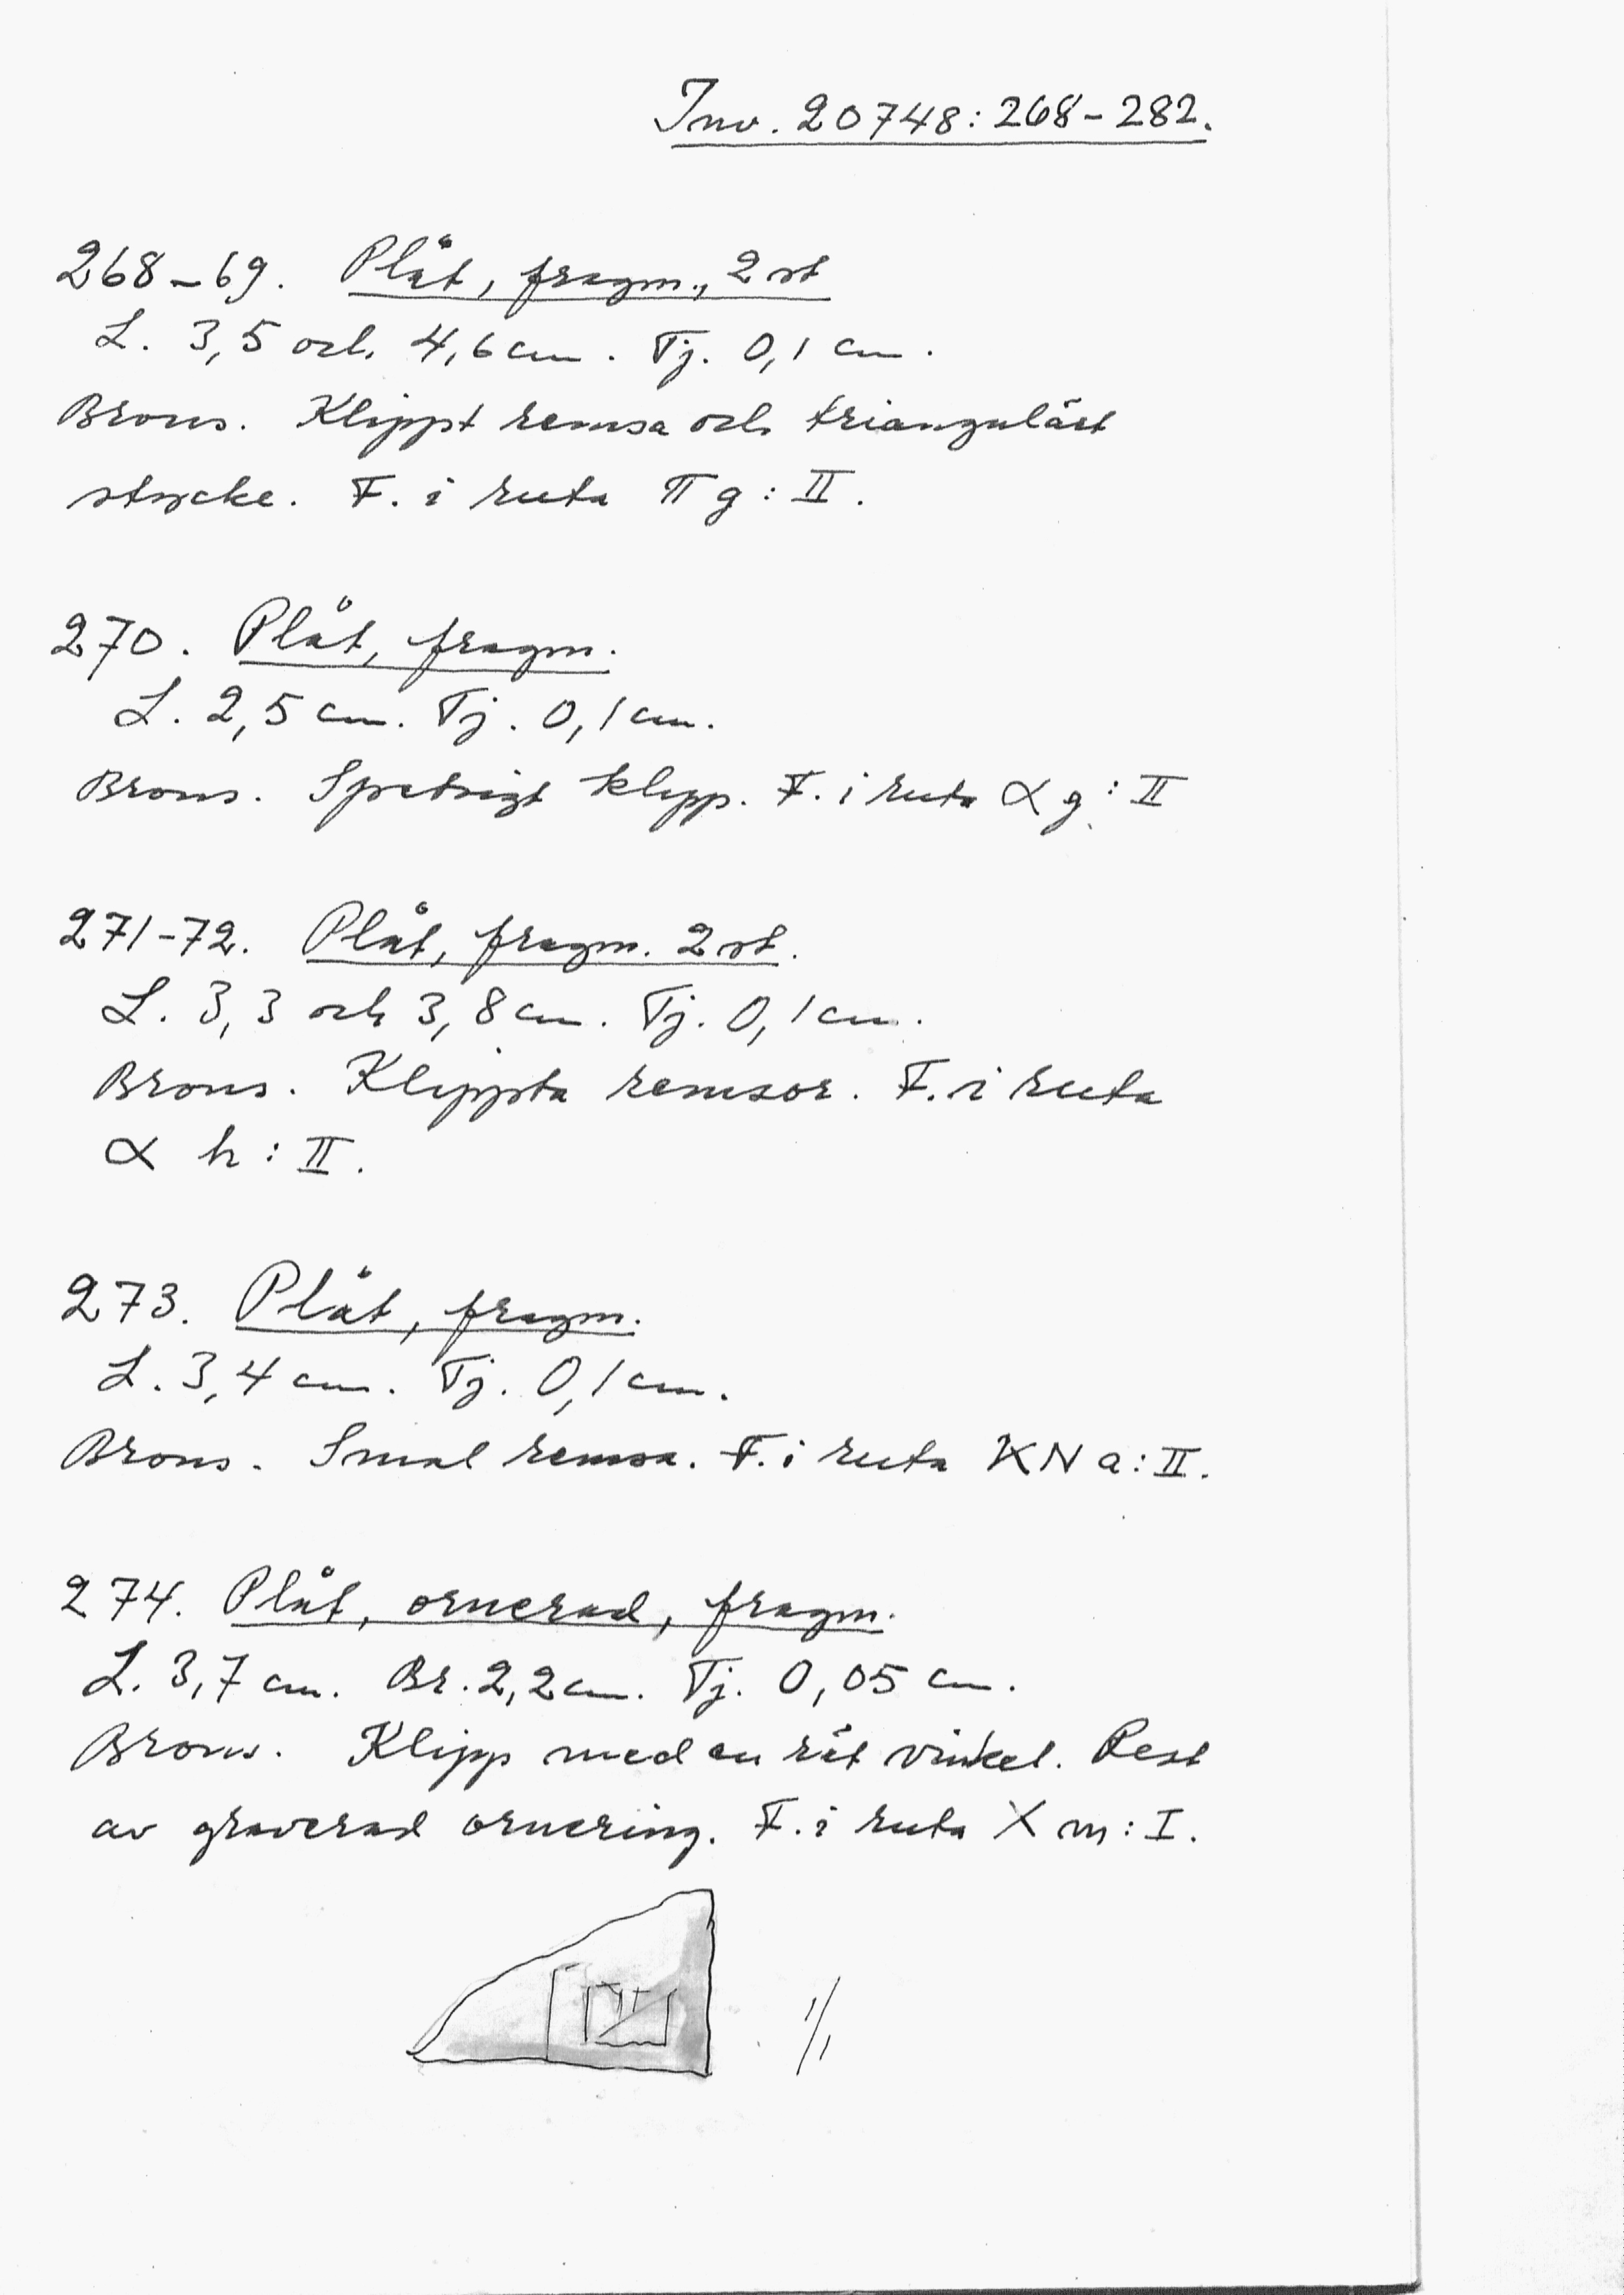 Inv. 20748:268-282.
268-69. Plåt, fragm., 2 st
L. 3,5 och 4,6 cm. Tj. 0,1 cm.
Brons. Klippt remsa och triangulärt
stycke. F. i ruta π g : II.
270. Plåt, fragm.
L. 2,5 cm. Tj. 0,1 cm.
Brons. Spetsigt klipp. F. i ruta α g : II
271-72. Plåt, fragm. 2 st.
L. 3,3 och 3,8 cm. Tj. 0,1 cm.
Brons. Klippta remsor. F. i ruta
α h : II.
273. Plåt, fragm.
L. 3,4 cm. Tj. 0,1 cm.
Brons. Smal remsa. F. i ruta KN a : II.
274. Plåt, ornerad, fragm.
L. 3,7 cm. Br. 2,2 cm. Tj. 0,05 cm.
Brons. Klipp med en rät vinkel. Rest
av graverad ornering. F. i ruta X m : I.
1/1